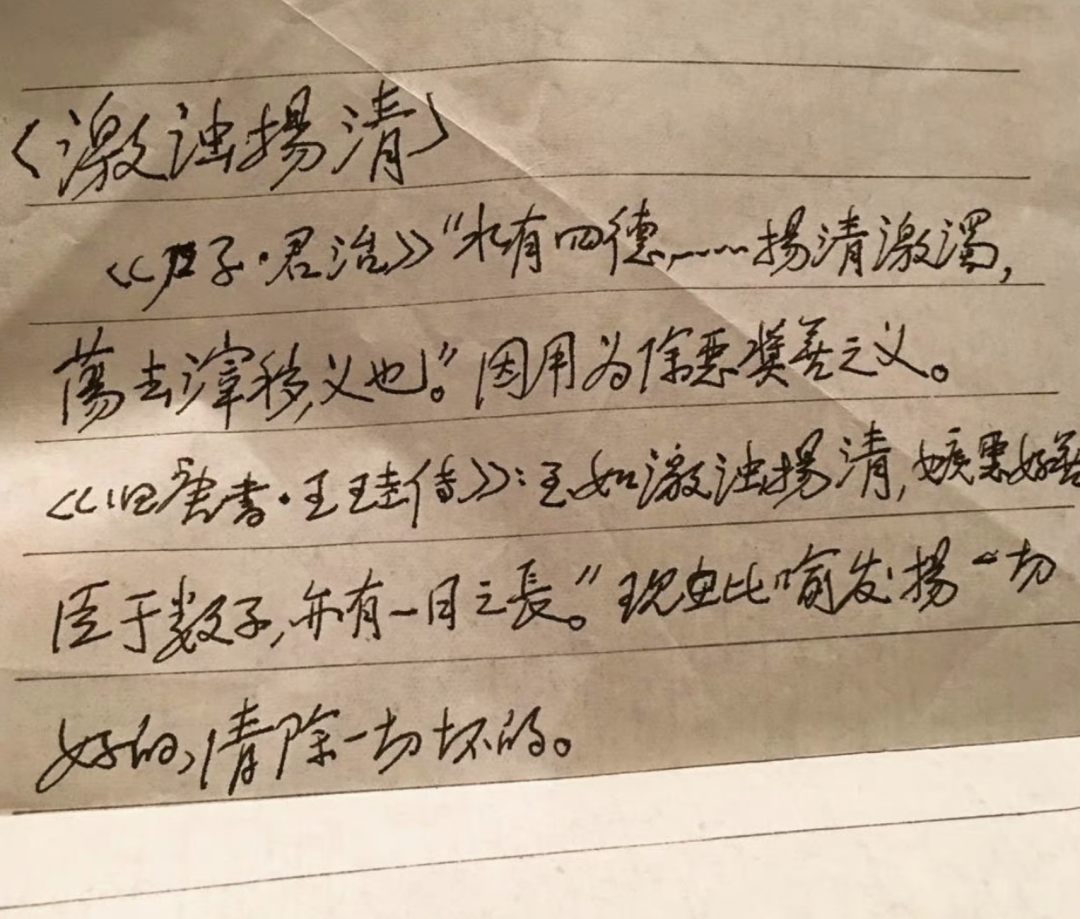 〈激浊揚清〉
《尸子·君治》“水有四德,……揚清激濁,
蕩去滓秽,义也。”因用为除恶奬善之义。
《旧唐书·王珪传》:至如激浊揚清,嫉恶好善
臣于数子,亦有一日之長。”现也比喻发揚一切
好的,清除一切坏的。